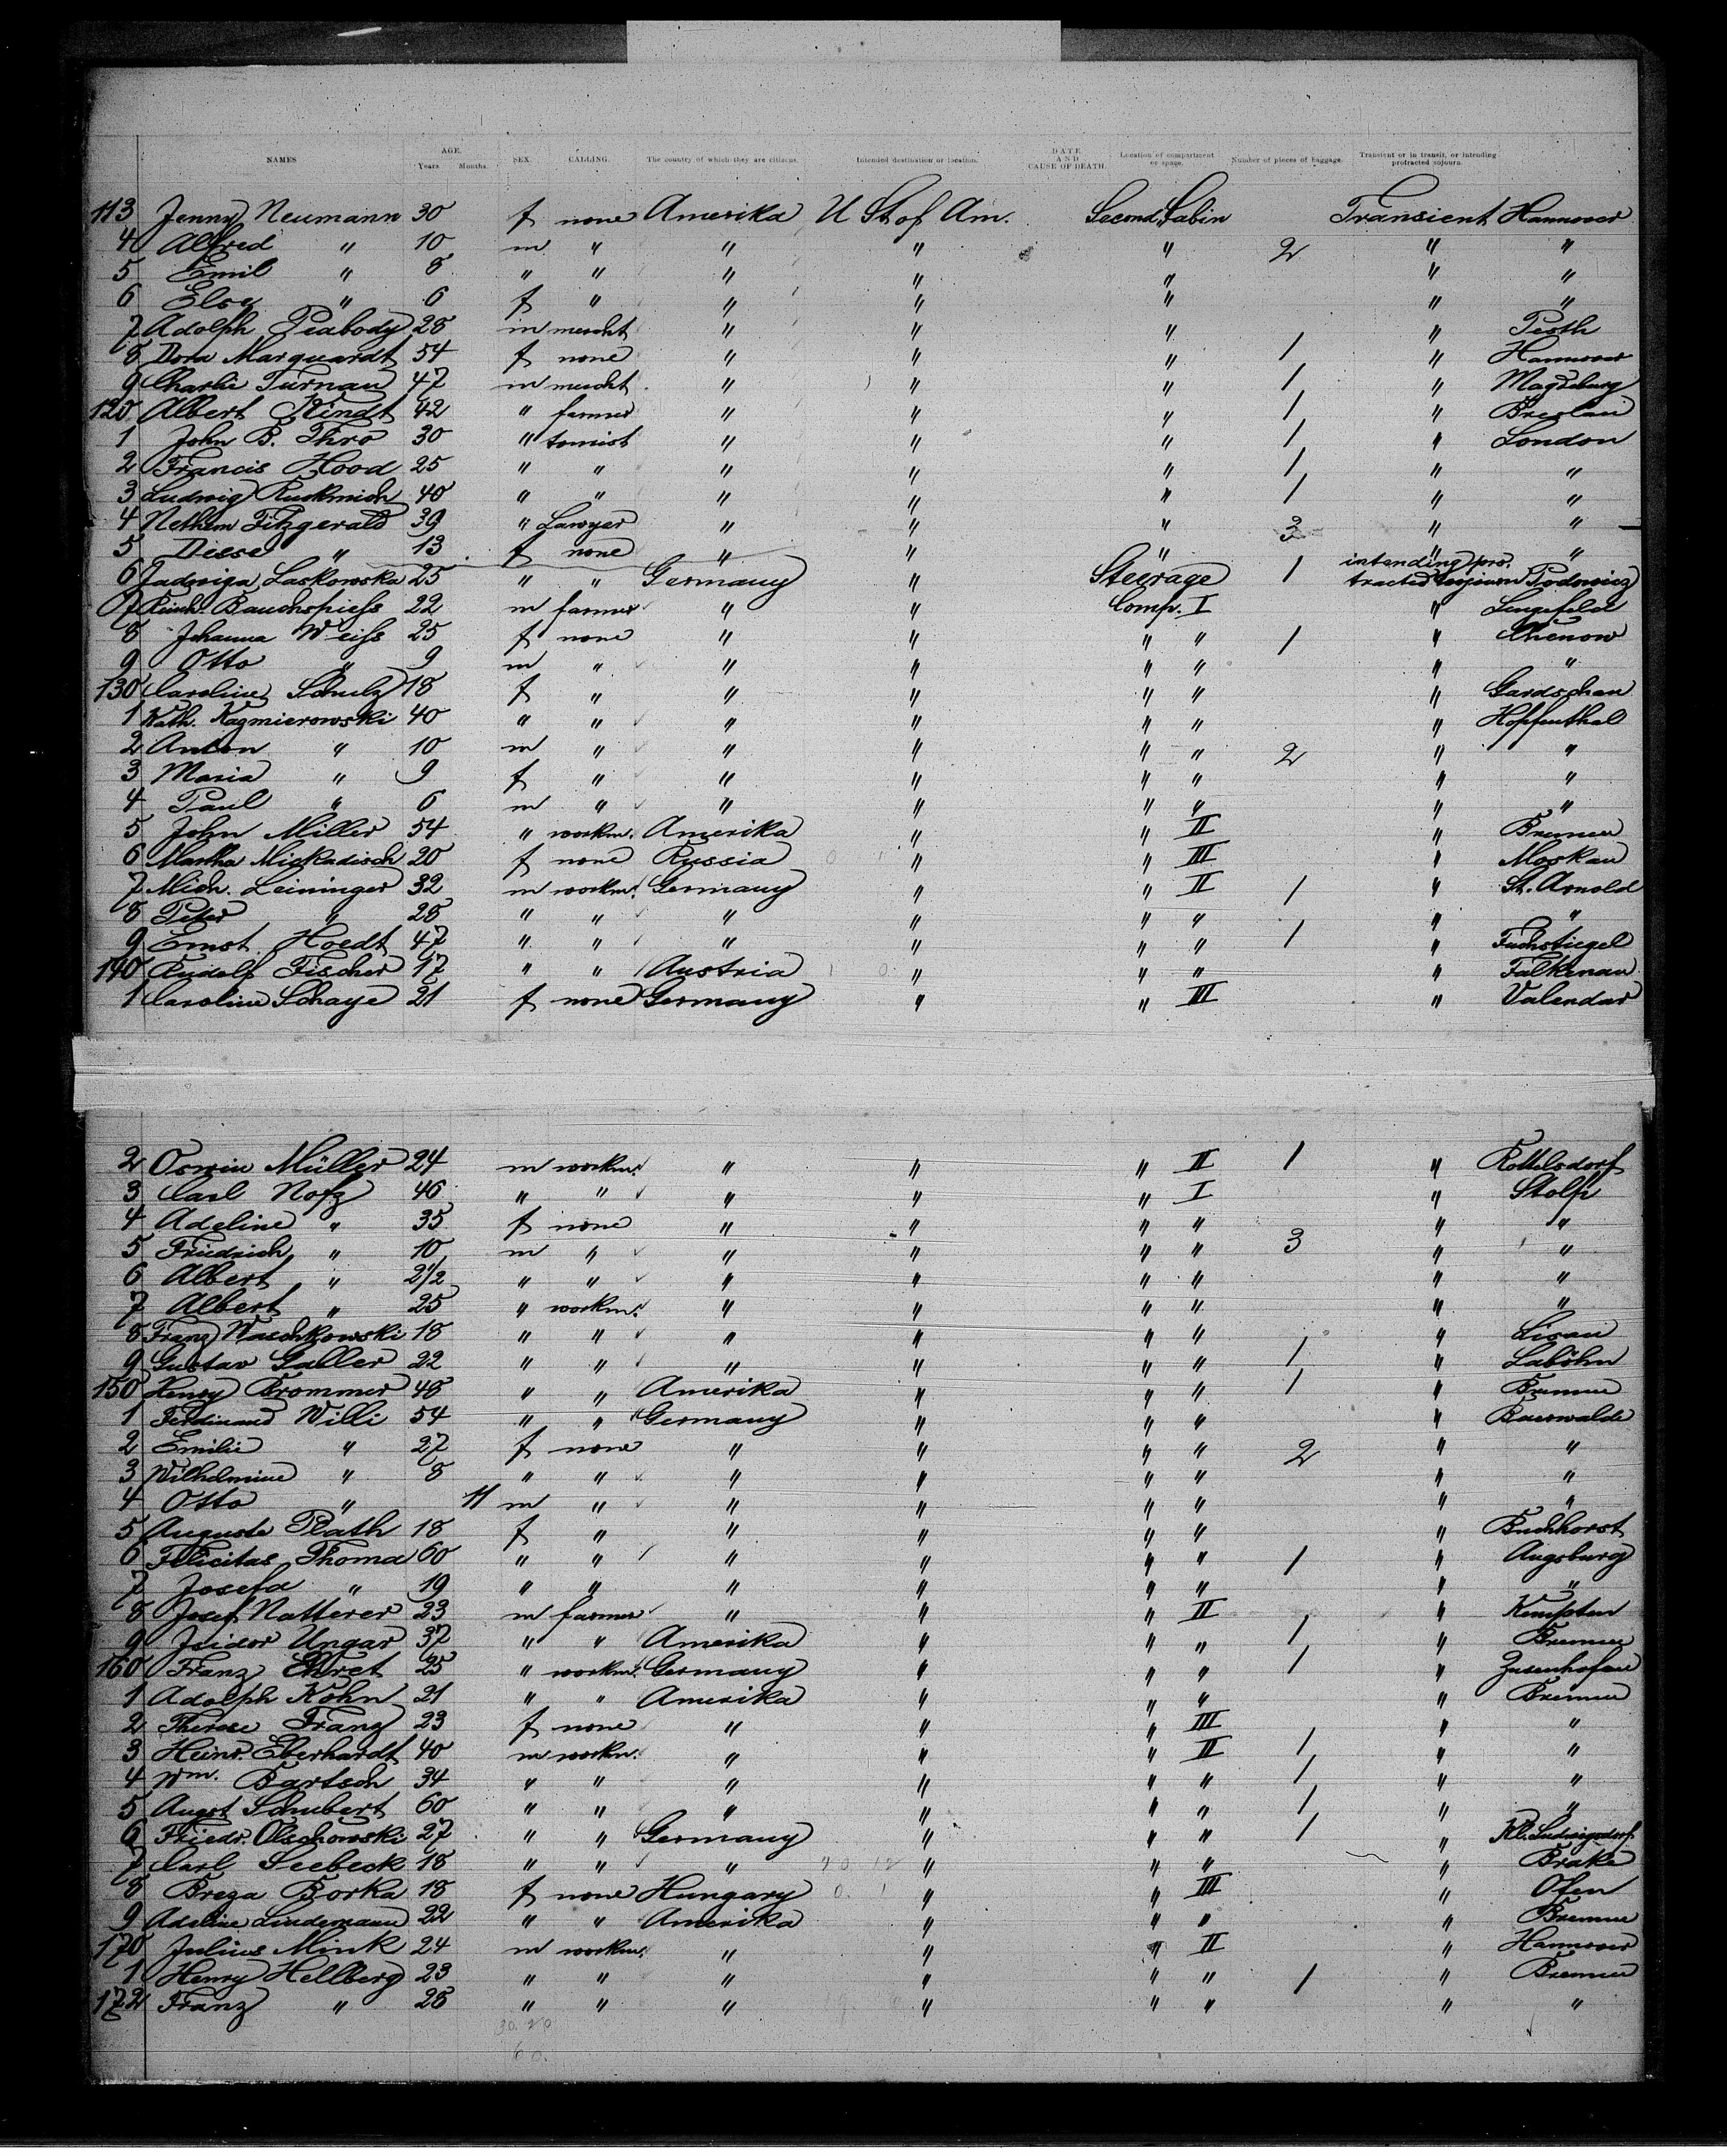 NAMES AGE. Years Months. SEX. CALLING. The country of which they are citizens. Intended destination or location. DATE AND CAUSE OF DEATH. Location of compartment or space. Number of pieces of baggage. Transient or in transit, or intending protracted sojourn.
113 Jenny Neumann 30 f none Amerika U St of Am. Second Cabin Transient Hannover
4 Alfred " 10 m " " " " 2 " "
5 Emil " 8 " " " " " " "
6 Else " 6 f " " " " " "
7 Adolph Peabody 28 m mercht " " " " Pesth
8 Dora Marquardt 54 f none " " " 1 " Hannover
9 Charlie Turnau 47 m mercht " " " 1 " Magdeburg
120 Albert Kindt 42 " farmer " " " 1 " Breslau
1 John B. Thro 30 " tourist " " " 1 " London
2 Francis Hood 25 " " " " " 1 " "
3 Ludwig Ruckmich 40 " " " " " 1 " "
4 Fitzgerald 39 " Lawyer " " " " "
5 " 13 f none " " " " "
6 Jadwiga Laskowska 25 " " Germany " Steerage 1 intending protracted sojourn Podwicz
7 22 m farmer " " Comp. I " Lengefeld
8 Johanna Weifs 25 f none " " " " 1 "
9 Otto " 9 m " " " " " " "
130 Caroline Schulz 18 f " " " " " " Gardschau
1 Kath. Kazmierowski 40 " " " " " " " Hopfenthal
2 Anton " 10 m " " " " " 2 " "
3 Maria " 9 f " " " " " " "
4 Paul " 6 m " " " " " " "
5 John Miller 54 " workm. Amerika " " II " Bremen
6 Martha 20 f none Russia " " III " Moskau
7 Mich. Leininger 32 m workm. Germany " " II 1 " St. Arnold
8 Peter " 28 " " " " " " " "
9 Ernst Hoedt 47 " " " " " " 1 "
140 Rudolf Fischer 17 " " Austria " " " " Falkenau
1 Caroline Schaye 21 f none Germany " " III " Valendar
2 Oswin Müller 24 m workm. " " " II 1 " Rottelsdorf
3 Carl Nofz 46 " " " " " I " Stolp
4 Adeline " 35 f none " " " " " "
5 Friedrich " 10 m " " " " " 3 " "
6 Albert " 2 1/2 " " " " " " " "
7 Albert " 25 " workm. " " " " " "
8 Franz Waschkowski 18 " " " " " " " Lisau
9 Gustav Galler 22 " " " " " " 1 " Laböhn
150 Henry Brommer 48 " " Amerika " " " 1 " Bremen
1 Ferdinand Willi 54 " " Germany " " " " Baerwalde
2 Emilie " 27 f none " " " " 2 " "
3 Wilhelmine " 8 " " " " " " " "
4 Otto " 11 m " " " " " " "
5 Auguste Plath 18 f " " " " " " Buchhorst
6 Felicitas Thoma 60 " " " " " " 1 " Augsburg
7 Josefa " 19 " " " " " " " "
8 Josef Natterer 23 m farmer " " " II " Kempten
9 Isidor Ungar 37 " " Amerika " " " 1 " Bremen
160 Franz Ehret 25 " workm. Germany " " " 1 " Zusenhofen
1 Adolph Kohn 21 " " Amerika " " " " Bremen
2 Therese Franz 23 f none " " " III " "
3 Heinr. Eberhardt 40 m workm. " " " II 1 " "
4 Wm. Bartsch 34 " " " " " " 1 " "
5 Augst Schubert 60 " " " " " " 1 " "
6 Friedr. Olschowski 27 " " Germany " " " 1 " Kl. Ludwigsdorf
7 Carl Seebeck 18 " " " " " " " Brake
8 Breza Borka 18 f none Hungary " " III " Ofen
9 Adeline Lindemann 22 " " Amerika " " " " Bremen
170 Julius Mink 24 m workm. " " " II " Hannover
1 Henry Hellberg 23 " " " " " " 1 " Bremen
172 Franz " 28 " " " " " " " "